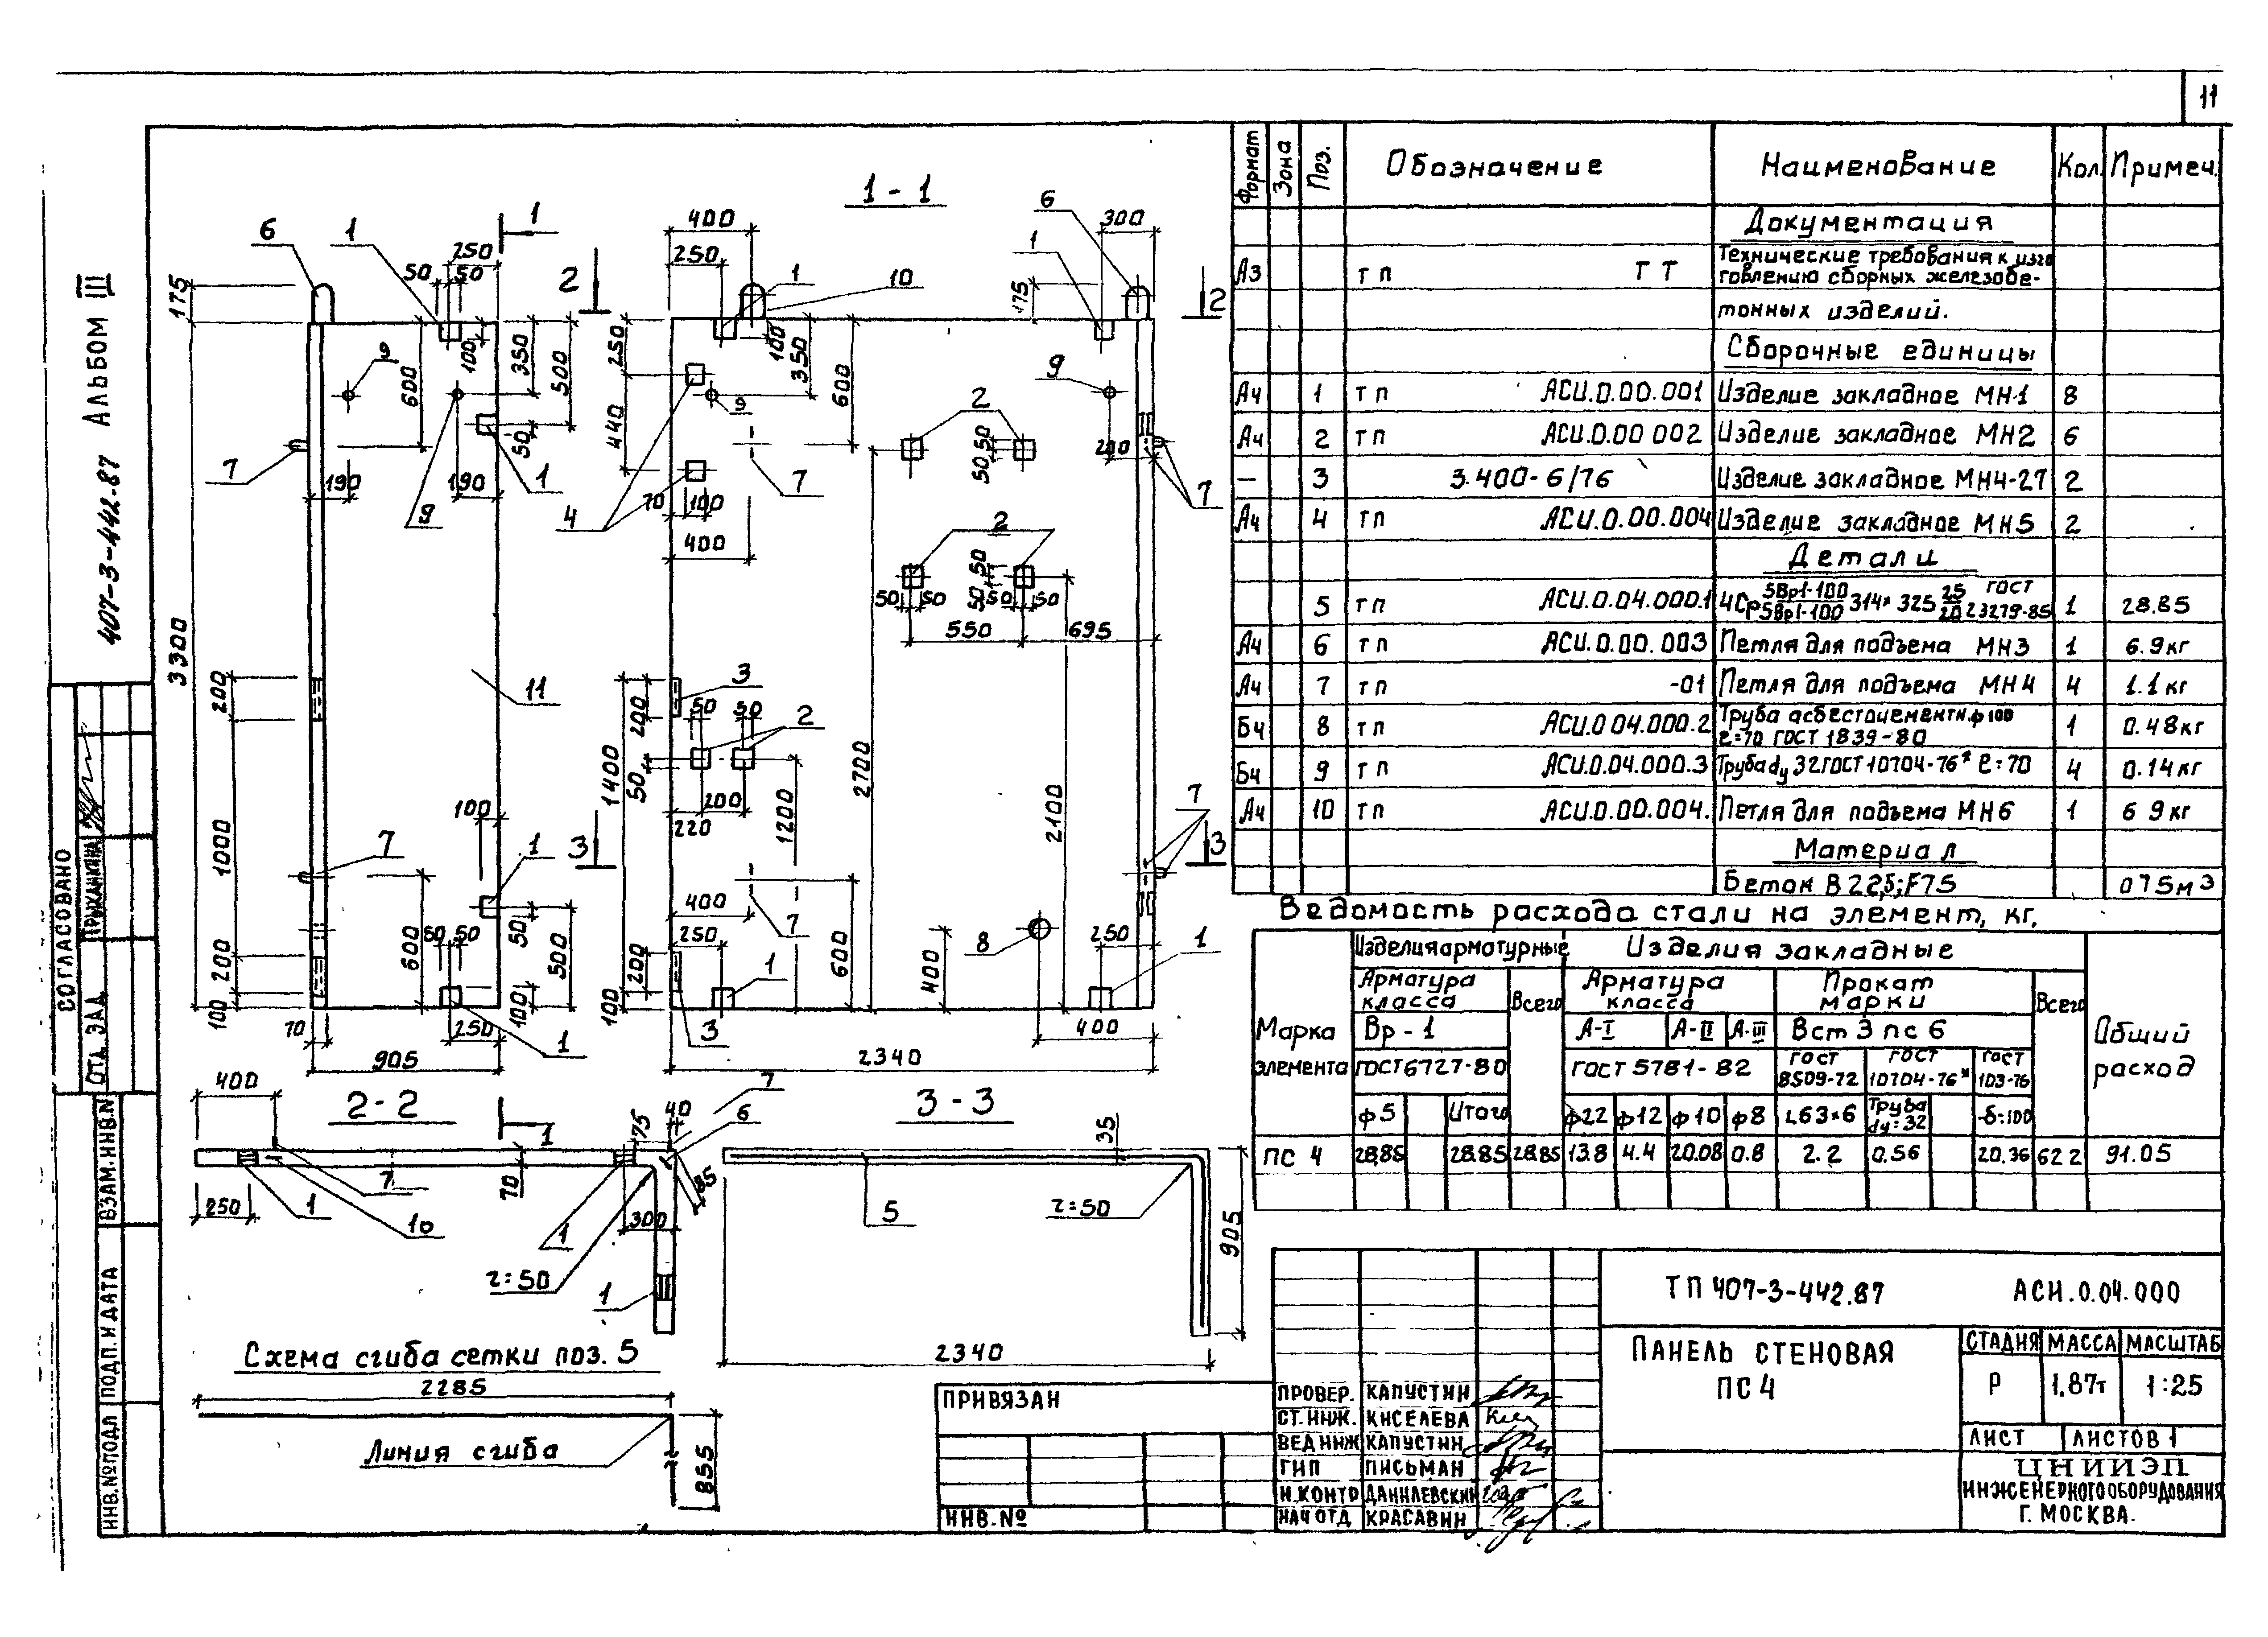 11
407-3-442.87 АЛЬБОМ III
СОГЛАСОВАНО
ОТД. ЭАД
ВЗАМ.ИНВ.N
ПОДП. И ДАТА
ИНВ.№ПОДЛ
1
6 1
250
50 50
175
100
350
500
600
9
50
7
190 190
1
9
3300
200
11
1000
100
7
1
600
50 50
50
500
200
100
100
70
250
1
905
1-1
400
250
1
10
6
1
300
175
2 2
250
440
100
350
600
9
9
2
50 50
200
7
7
4
70 100
400
2
50 50
50 50
50 50
550 695
3
200
50 50
2
1400
50
200
220
1200
2700
2100
7
3 3
400
7
250
600
8
400
250
1
1
200
100
3
400
2340
2-2
400
7
75
40
6
1
70
85
7
250
1
10
1
300
r=50
1
3-3
35
5
r=50
905
2340
Схема сгиба сетки поз. 5
2285
Линия сгиба
855
Формат Зона Поз. Обозначение Наименование Кол. Примеч.
Документация
А3 ТП ТТ Технические требования к изго
товлению сборных железобе-
тонных изделий.
Сборочные единицы
А4 1 ТП АСИ.0.00.001 Изделие закладное МН-1 8
А4 2 ТП АСИ.0.00 002 Изделие закладное МН2 6
— 3 3.400-6/76 Изделие закладное МН4-27 2
А4 4 ТП АСИ.0.00.004 Изделие закладное МН5 2
Детали
5 ТП АСИ.0.04.000.1 4Ср 5ВрI-100/5ВрI-100 314×325 25/20 ГОСТ 23279-85 1 28.85
А4 6 ТП АСИ.0.00.003 Петля для подъема МН3 1 6.9кг
А4 7 ТП -01 Петля для подъема МН4 4 1.1кг
Б4 8 ТП АСИ.0 04.000.2 Труба асбестоцементн.ф100
ℓ=70 ГОСТ 1839-80 1 0.48кг
Б4 9 ТП АСИ.0.04.000.3 Труба dу 32 ГОСТ 10704-76* ℓ=70 4 0.14кг
А4 10 ТП АСИ.0.00.004. Петля для подъема МН6 1 6 9кг
Материал
Бетон В 22,5; F75 075м3
Ведомость расхода стали на элемент, кг.
Марка элемента
Изделия арматурные Изделия закладные
Арматура класса Всего Арматура класса Прокат марки Всего Общий расход
Вр-1 А-I А-II А-III Вст 3 пс 6
ГОСТ6727-80 ГОСТ 5781-82 ГОСТ 8509-72 ГОСТ 10704-76* ГОСТ 103-76
ф5 Итого ф22 ф12 ф10 ф8 L63×6 Труба dу=32 -δ=100
ПС 4 28,85 28.85 28.85 13.8 4.4 20.08 0.8 2.2 0.56 20.36 62 2 91.05
ПРИВЯЗАН
ИНВ.№
ПРОВЕР. КАПУСТИН
СТ.ИНЖ. КИСЕЛЕВА
ВЕД ИНЖ КАПУСТИН
ГИП ПИСЬМАН
Н.КОНТР ДАНИЛЕВСКИЙ
НАЧ ОТД КРАСАВИН
ТП 407-3-442.87 АСИ.0.04.000
ПАНЕЛЬ СТЕНОВАЯ
ПС 4
СТАДИЯ МАССА МАСШТАБ
Р 1.87т 1:25
ЛИСТ ЛИСТОВ 1
ЦНИИЭП
ИНЖЕНЕРНОГО ОБОРУДОВАНИЯ
Г. МОСКВА.